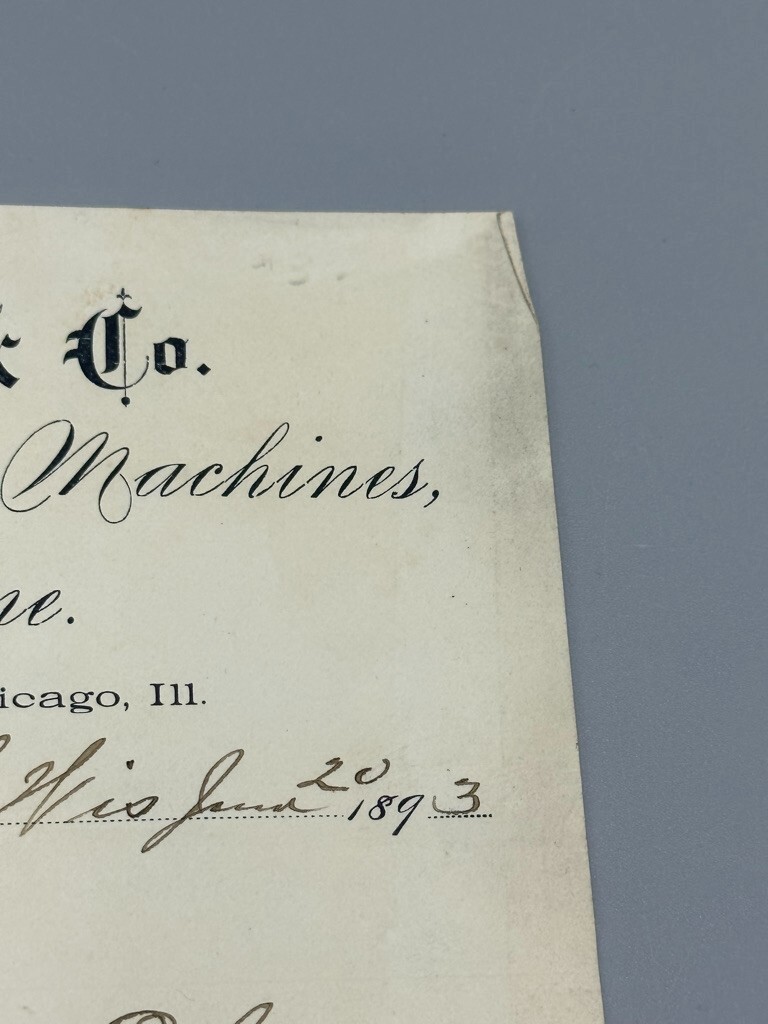 & Co.
Machines,
ne.
icago, Ill.
Wis June 20 1893